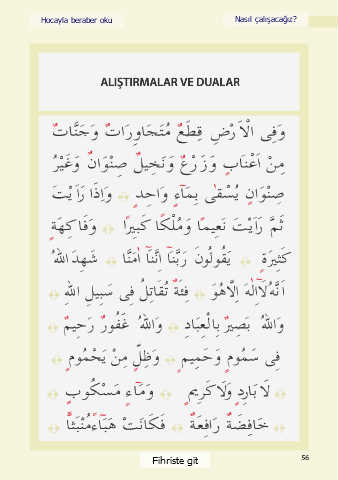 Hocayla beraber oku
Nasıl çalışacağız?
ALIŞTIRMALAR VE DUALAR
وَفِى الْاَرْضِ قِطَعٌ مُتَجَاوِرَاتٌ وَجَنَّاتٌ
مِنْ اَعْنَابٍ وَزَرْعٌ وَنَخِيلٌ صِنْوَانٌ وَغَيْرُ
صِنْوَانٍ يُسْقٰى بِمَٓاءٍ وَاحِدٍ ﴿﴾ وَاِذَا رَاَيْتَ
ثَمَّ رَاَيْتَ نَعِيمًا وَمُلْكًا كَبِيرًا ﴿﴾ وَفَاكِهَةٍ
كَثِيرَةٍ ﴿﴾ يَقُولُونَ رَبَّنَٓا اِنَّنَٓا اٰمَنَّا ﴿﴾ شَهِدَ اللهُ
اَنَّهُ لَٓا اِلٰهَ اِلَّا هُوَ ﴿﴾ فِئَةٌ تُقَاتِلُ فِى سَبِيلِ اللهِ ﴿﴾
وَاللهُ بَصِيرٌ بِالْعِبَادِ ﴿﴾ وَاللهُ غَفُورٌ رَحِيمٌ ﴿﴾
فِى سَمُومٍ وَحَمِيمٍ ﴿﴾ وَظِلٍّ مِنْ يَحْمُومٍ ﴿﴾
﴿﴾ لَا بَارِدٍ وَلَا كَرِيمٍ ﴿﴾ وَمَٓاءٍ مَسْكُوبٍ ﴿﴾
﴿﴾ خَافِضَةٌ رَافِعَةٌ ﴿﴾ فَكَانَتْ هَبَٓاءً مُنْبَثًّا ﴿﴾
Fihriste git
56